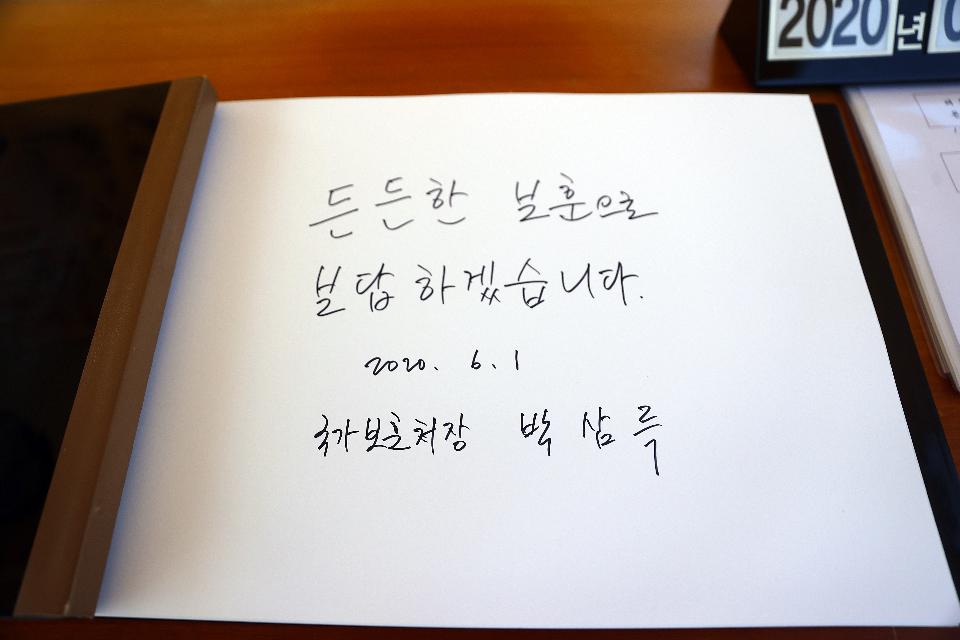 2020년
든든한 보훈으로
보답하겠습니다.
2020. 6. 1
국가보훈처장 박삼득